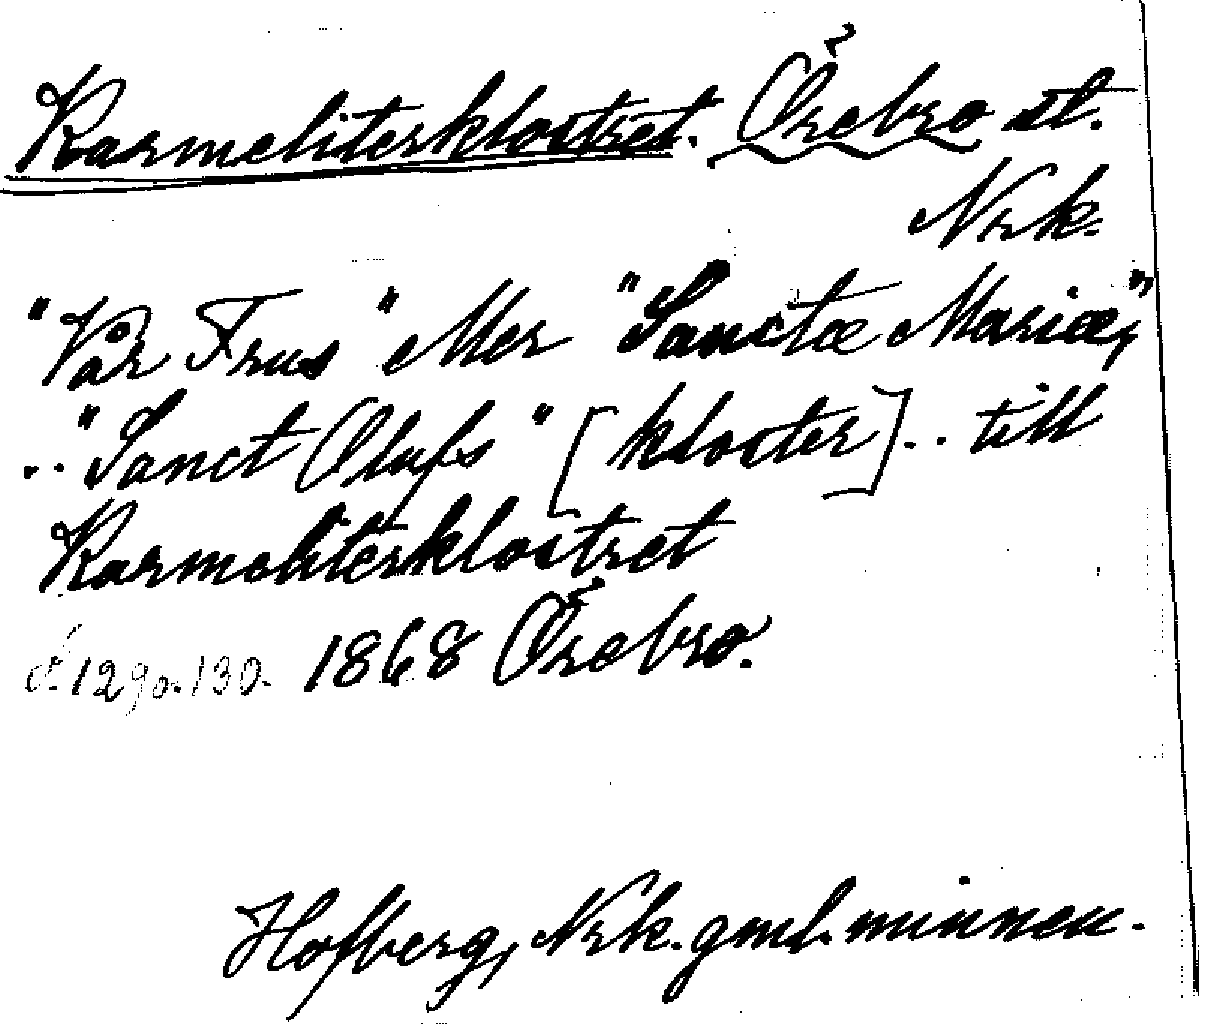 Karmeliterklostret. Örebro st.
Nrk.
"Vår Frus" eller "Sanctæ Mariæ,"
.. "Sanct Olufs" [kloster] .. till
Karmeliterklostret
s. 129 o. 130. 1868 Örebro.
Hofberg, Nrk. gml. minnen.